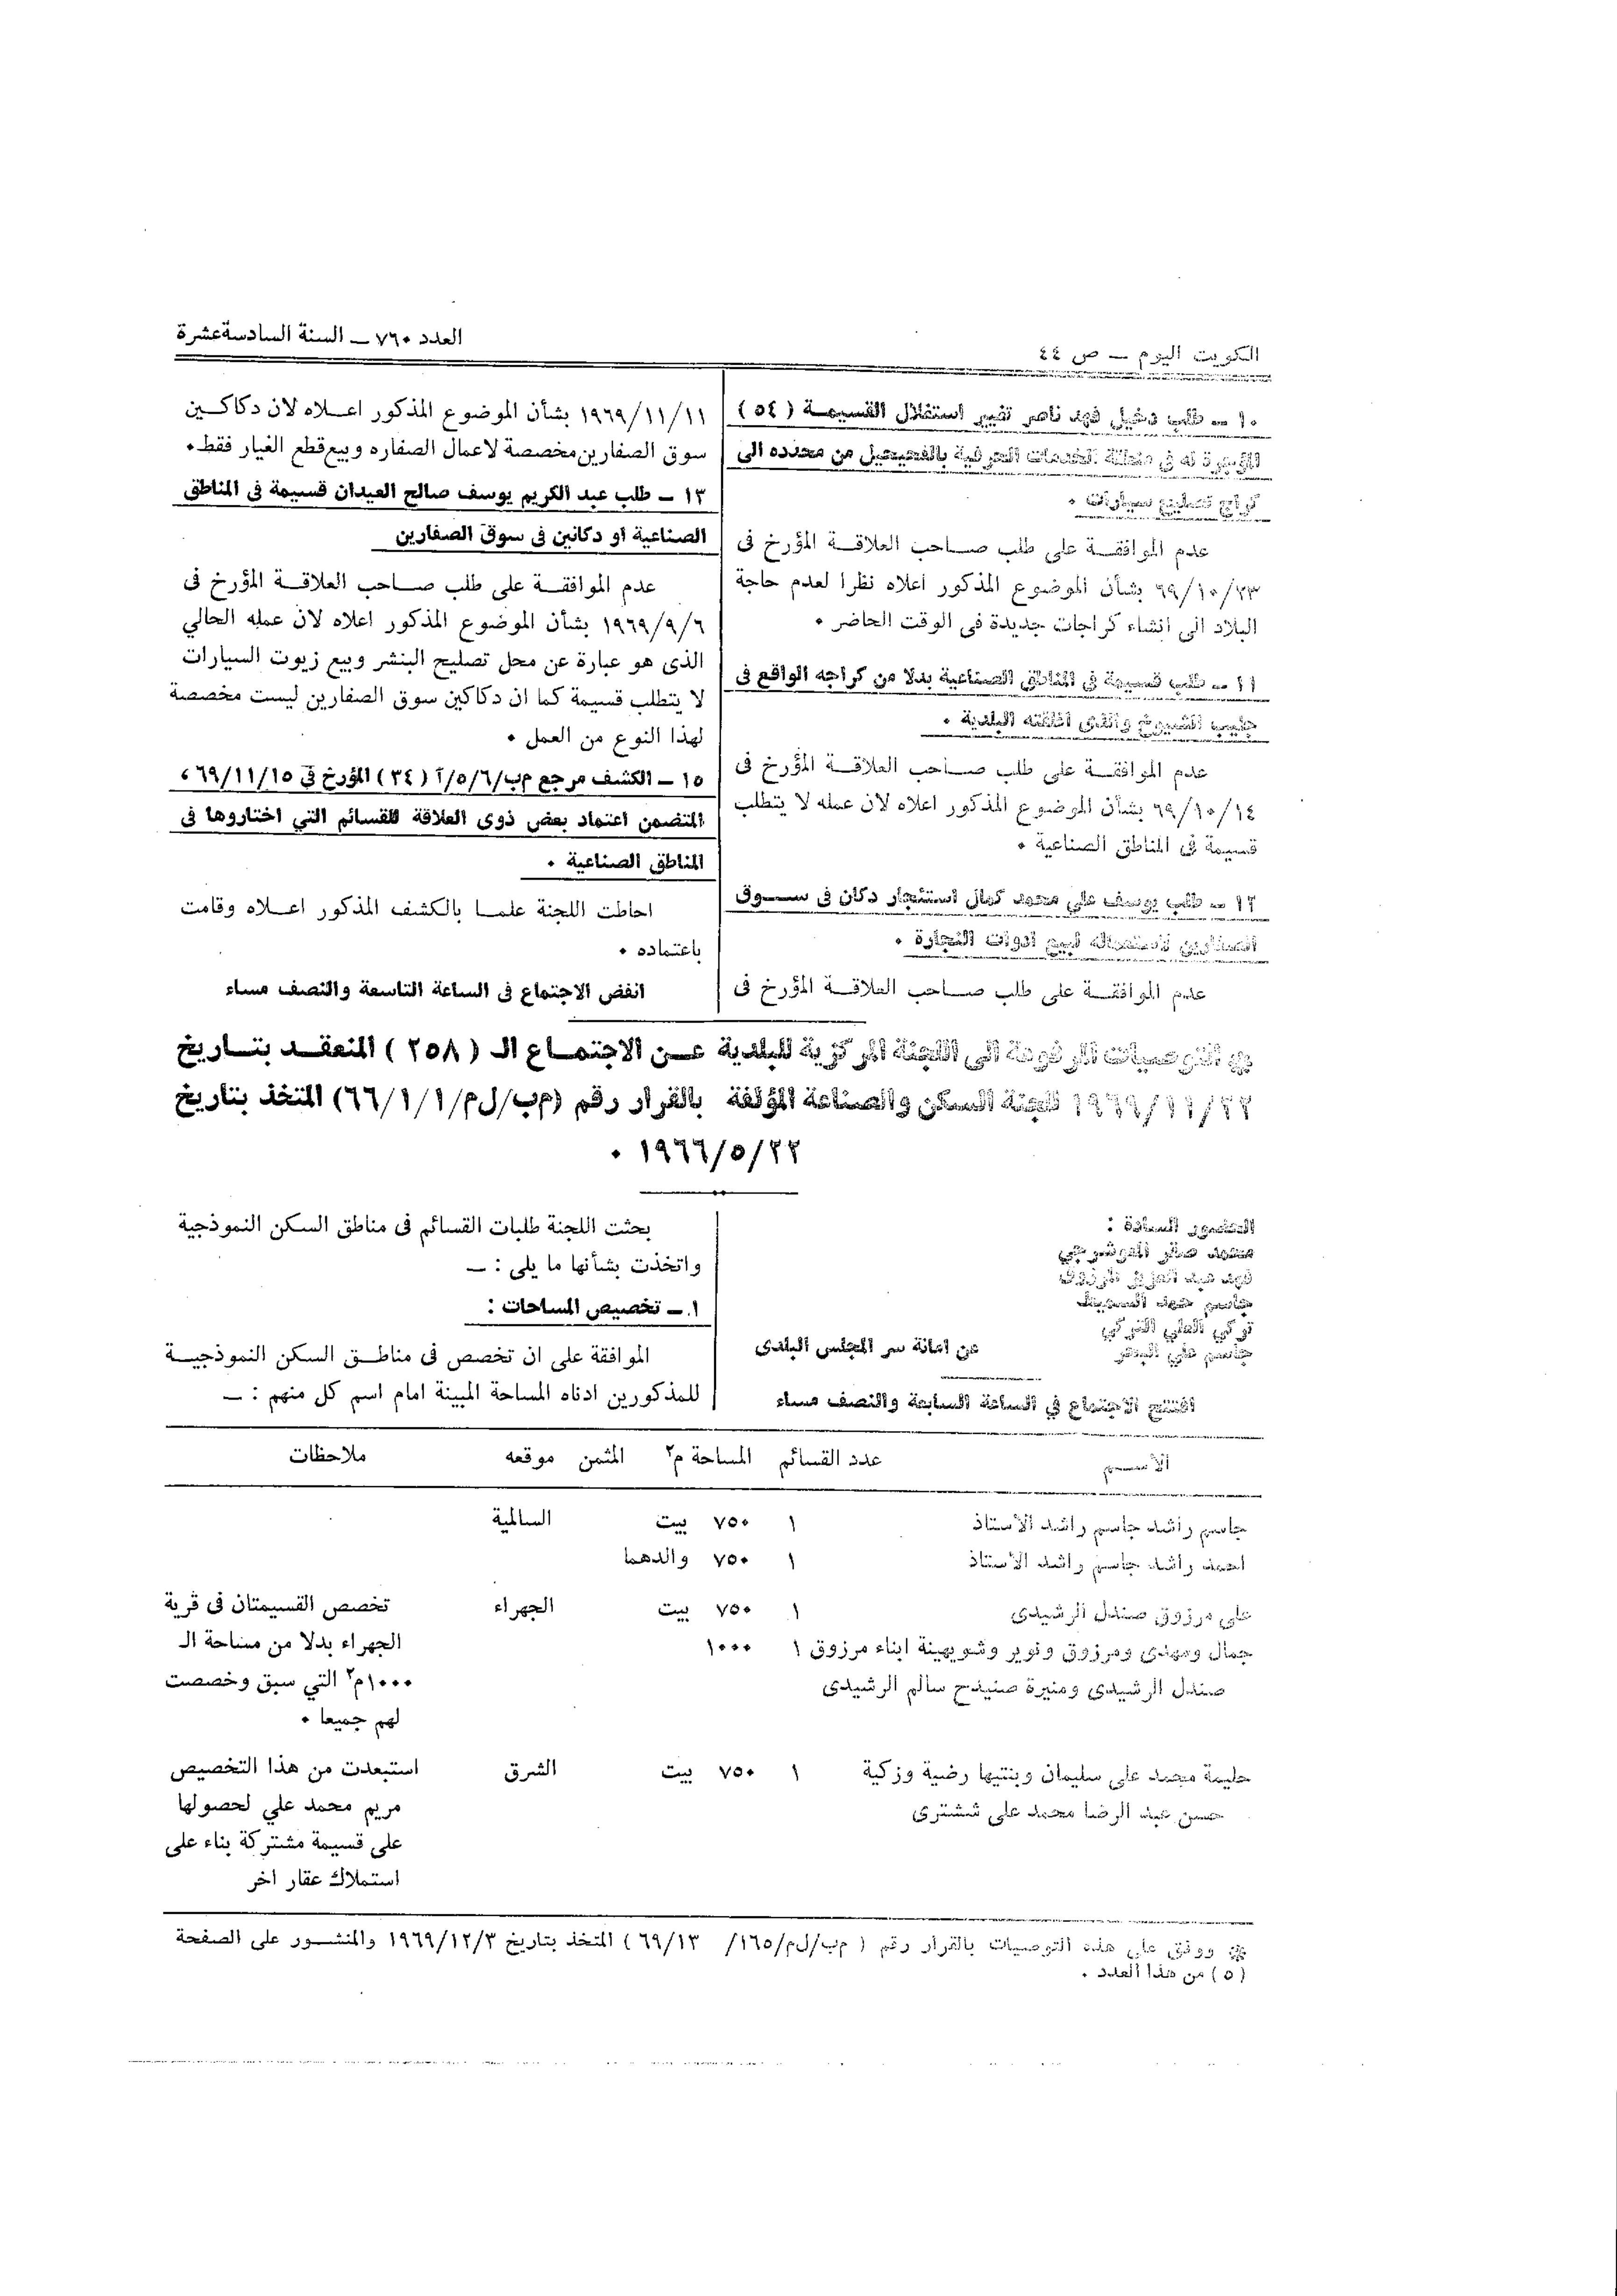 الكويت اليوم — ص ٤٤
العدد ٧٦٠ — السنة السادسة عشرة
١٠ — طلب دخيل فهد ناصر تغيير استغلال القسيمة ( ٥٤ )
المؤجرة له في منطقة الخدمات الحرفية بالفحيحيل من محدده الى
كراج تصليح سيارات ٠
عدم الموافقة على طلب صاحب العلاقة المؤرخ في
٦٩/١٠/٢٣ بشأن الموضوع المذكور اعلاه نظرا لعدم حاجة
البلاد الى انشاء كراجات جديدة في الوقت الحاضر ٠
١١ — طلب قسيمة في المناطق الصناعية بدلا من كراجه الواقع في
جليب الشيوخ والذى اغلقته البلدية ٠
عدم الموافقة على طلب صاحب العلاقة المؤرخ في
٦٩/١٠/١٤ بشأن الموضوع المذكور اعلاه لان عمله لا يتطلب
قسيمة في المناطق الصناعية ٠
١٢ — طلب يوسف علي محمد كمال استئجار دكان في سوق
الصفارين لاستعماله لبيع ادوات النجارة ٠
عدم الموافقة على طلب صاحب العلاقة المؤرخ في
١٩٦٩/١١/١١ بشأن الموضوع المذكور اعلاه لان دكاكين
سوق الصفارين مخصصة لاعمال الصفاره وبيع قطع الغيار فقط٠
١٣ — طلب عبد الكريم يوسف صالح العيدان قسيمة في المناطق
الصناعية او دكانين في سوق الصفارين
عدم الموافقة على طلب صاحب العلاقة المؤرخ في
١٩٦٩/٩/٦ بشأن الموضوع المذكور اعلاه لان عمله الحالي
الذى هو عبارة عن محل تصليح البنشر وبيع زيوت السيارات
لا يتطلب قسيمة كما ان دكاكين سوق الصفارين ليست مخصصة
لهذا النوع من العمل ٠
١٥ — الكشف مرجع م ب/٥/٦/آ ( ٣٤ ) المؤرخ في ٦٩/١١/١٥ ،
المتضمن اعتماد بعض ذوى العلاقة للقسائم التي اختاروها في
المناطق الصناعية ٠
احاطت اللجنة علما بالكشف المذكور اعلاه وقامت
باعتماده ٠
انفض الاجتماع في الساعة التاسعة والنصف مساء
التوصيات المرفوعة الى اللجنة المركزية للبلدية عن الاجتماع الـ ( ٢٥٨ ) المنعقد بتاريخ
١٩٦٩/١١/٢٢ للجنة السكن والصناعة المؤلفة بالقرار رقم (م ب/ل م/٦٦/١/١) المتخذ بتاريخ
١٩٦٦/٥/٢٢ ٠
الحضور السادة :
محمد صقر المعوشرجي
فهد عبد العزيز المرزوق
جاسم
تركي العلي التركي
جاسم علي
عن امانة سر المجلس البلدى
افتتح الاجتماع في الساعة السابعة والنصف مساء
بحثت اللجنة طلبات القسائم في مناطق السكن النموذجية
واتخذت بشأنها ما يلي : —
١ — تخصيص المساحات :
الموافقة على ان تخصص في مناطق السكن النموذجية
للمذكورين ادناه المساحة المبينة امام اسم كل منهم : —
الاسم عدد القسائم المساحة م٢ المثمن موقعه ملاحظات
جاسم راشد جاسم راشد الاستاذ ١ ٧٥٠ بيت السالمية
احمد راشد جاسم راشد الاستاذ ١ ٧٥٠ والدهما
علي مرزوق صندل الرشيدى ١ ٧٥٠ بيت الجهراء تخصص القسيمتان في قرية
جمال ومهدى ومرزوق ونوير وشويهينة ابناء مرزوق ١ ١٠٠٠ الجهراء بدلا من مساحة الـ
صندل الرشيدى ومنيرة صنيدح سالم الرشيدى ١٠٠٠م٢ التي سبق وخصصت
لهم جميعا ٠
حليمة محمد علي سليمان وبنتيها رضية وزكية ١ ٧٥٠ بيت الشرق استبعدت من هذا التخصيص
حسن عبد الرضا محمد علي ششترى مريم محمد علي لحصولها
على قسيمة مشتركة بناء على
استملاك عقار اخر
※ ووفق على هذه التوصيات بالقرار رقم ( م ب/ل م/١٦٥/ ٦٩/١٣ ) المتخذ بتاريخ ١٩٦٩/١٢/٣ والمنشور على الصفحة
( ٥ ) من هذا العدد ٠